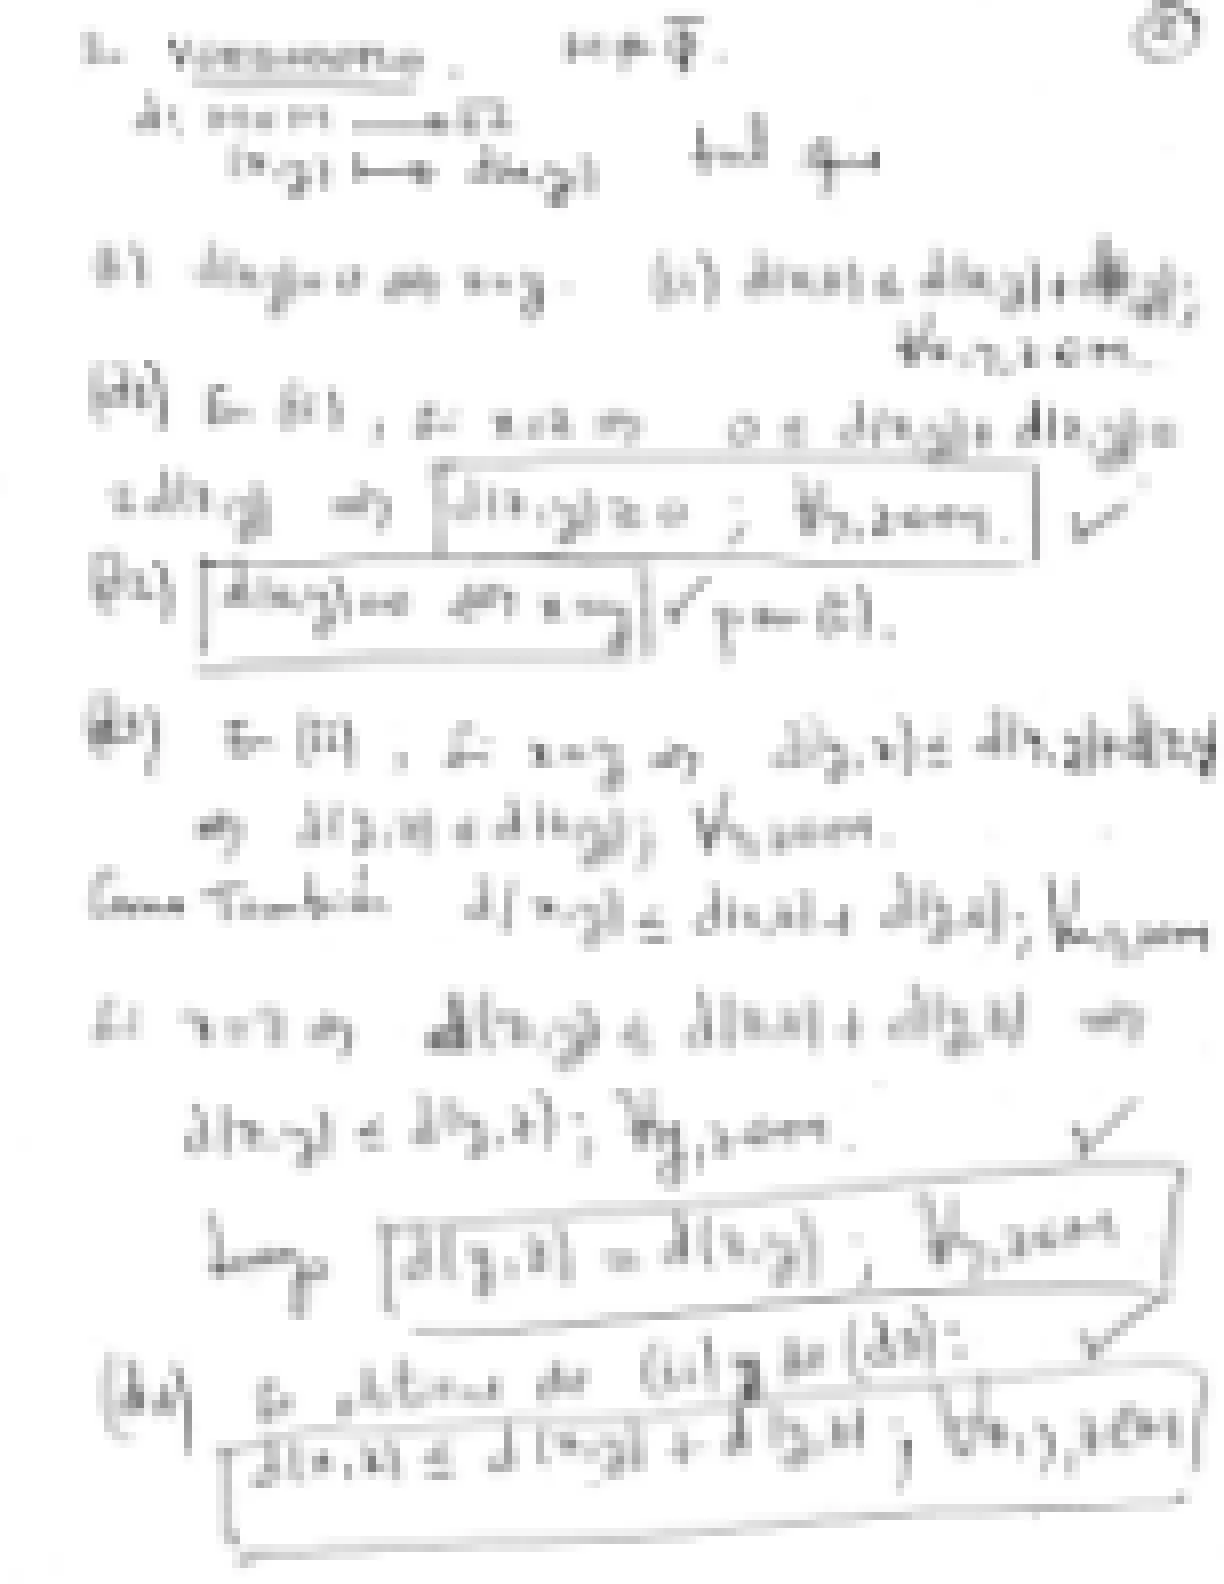 M ≠ Φ.
d: M×M ⟶ ℝ
(x,y) ⟼ d(x,y) tal que
(i) d(x,y)=0 ⇔ x=y. (ii) d(x,z) ≤ d(x,y)+d(z,y);
∀x,y,z∈M.
(d1) En (ii), si x=z ⇒ 0 ≤ d(z,y)+d(z,y)=
2d(z,y) ⇒ d(z,y) ≥ 0 ; ∀y,z∈M. ✓
(d2) d(x,y)=0 ⇔ x=y ✓ por (i).
(d3) En (ii), si x=y ⇒ d(y,z) ≤ d(y,y)+d(z,y)
⇒ d(y,z) ≤ d(z,y); ∀y,z∈M.
Como también d(x,y) ≤ d(x,z)+d(y,z); ∀x,y,z∈M
Si x=z ⇒ d(z,y) ≤ d(z,z)+d(y,z) ⇒
d(z,y) ≤ d(y,z); ∀y,z∈M. ✓
Luego d(y,z) = d(z,y); ∀y,z∈M
(d4) Se obtiene de (ii) y de (d3): ✓
d(x,z) ≤ d(x,y)+d(y,z); ∀x,y,z∈M